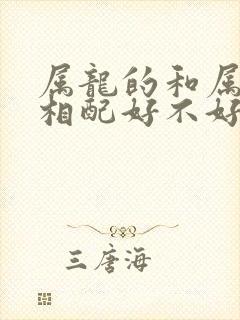 属龍的和属
相配好不好
三唐海